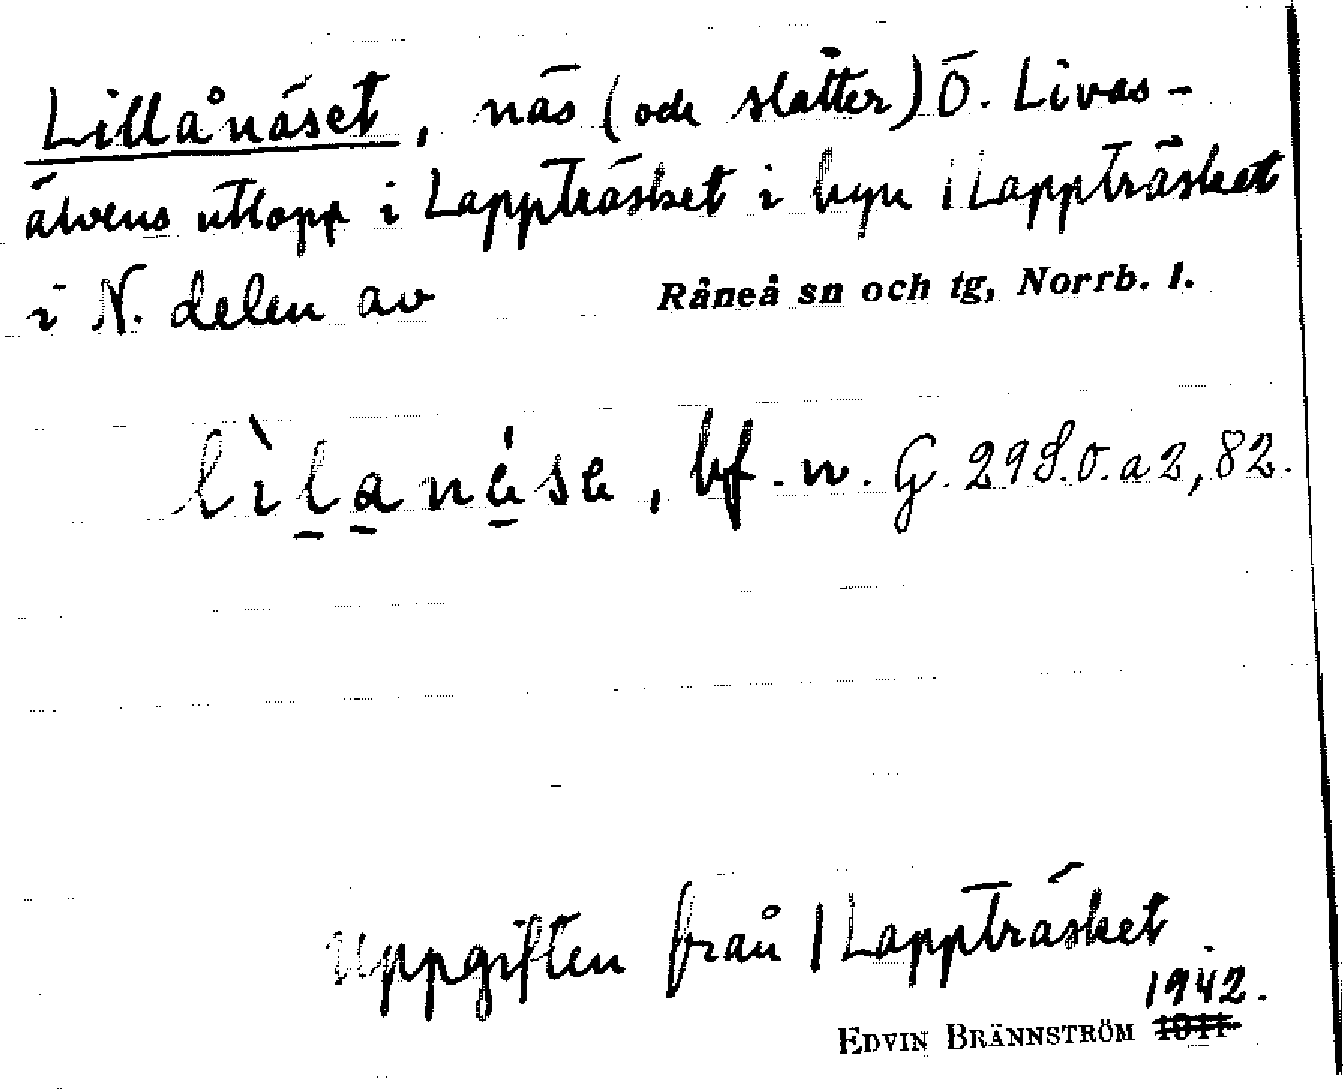 Lillånäset, näs (och slåtter) Ö. Livas-
älvens utlopp i Lappträsket i byn | Lappträsket
i N. delen av Råneå sn och tg, Norrb. l.
bf. n. G. 29 S.O. a 2, 82.
Uppgiften från | Lappträsket.
1942.
EDVIN BRÄNNSTRÖM